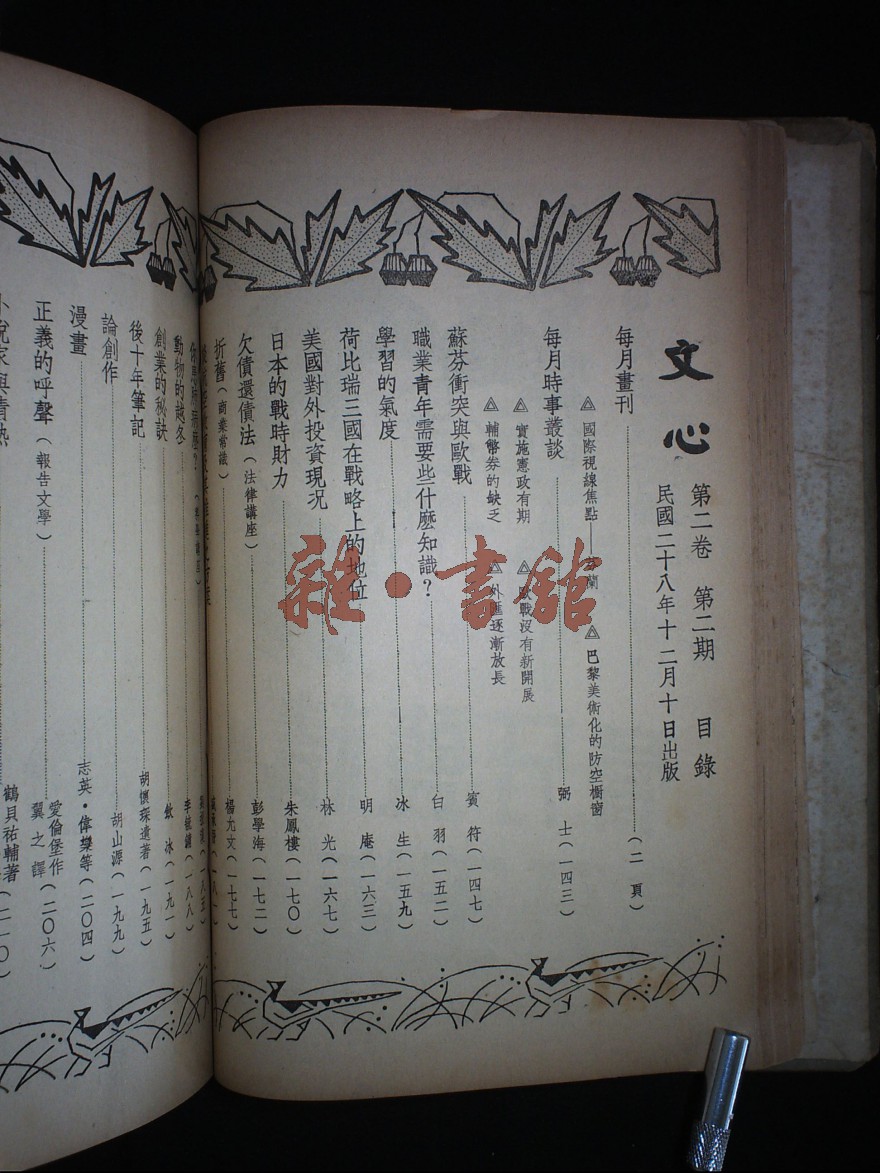 文心 第二卷 第二期 目錄
民國二十八年十二月十日出版
每月畫刊(二頁)
◬ 國際視線焦點——芬蘭 ◬ 巴黎美術化的防空櫥窗
每月時事叢談 弼士(一四三)
◬ 實施憲政有期 ◬ 歐戰沒有新開展
◬ 輔幣券的缺乏 ◬ 外匯逐漸放長
蘇芬衝突與歐戰 賓符(一四七)
職業青年需要些什麽知識? 白羽(一五二)
學習的氣度 冰生(一五九)
荷比瑞三國在戰略上的地位 明庵(一六三)
美國對外投資現况 林光(一六七)
日本的戰時財力 朱鳳樓(一七〇)
欠債還債法(法律講座) 彭學海(一七二)
折舊(商業常識) 楊允文(一七七)
動物的越冬 (一八八)
創業的秘訣 冰(一九一)
後十年筆記 胡懷琛遺著(一九五)
論創作 胡山源(一九九)
漫畫 志英·偉樂等(二〇四)
正義的呼聲(報告文學) 愛倫堡作 翼之譯(二〇六)
小說家與情熱 鶴見祐輔著(二一〇)
雜·書館